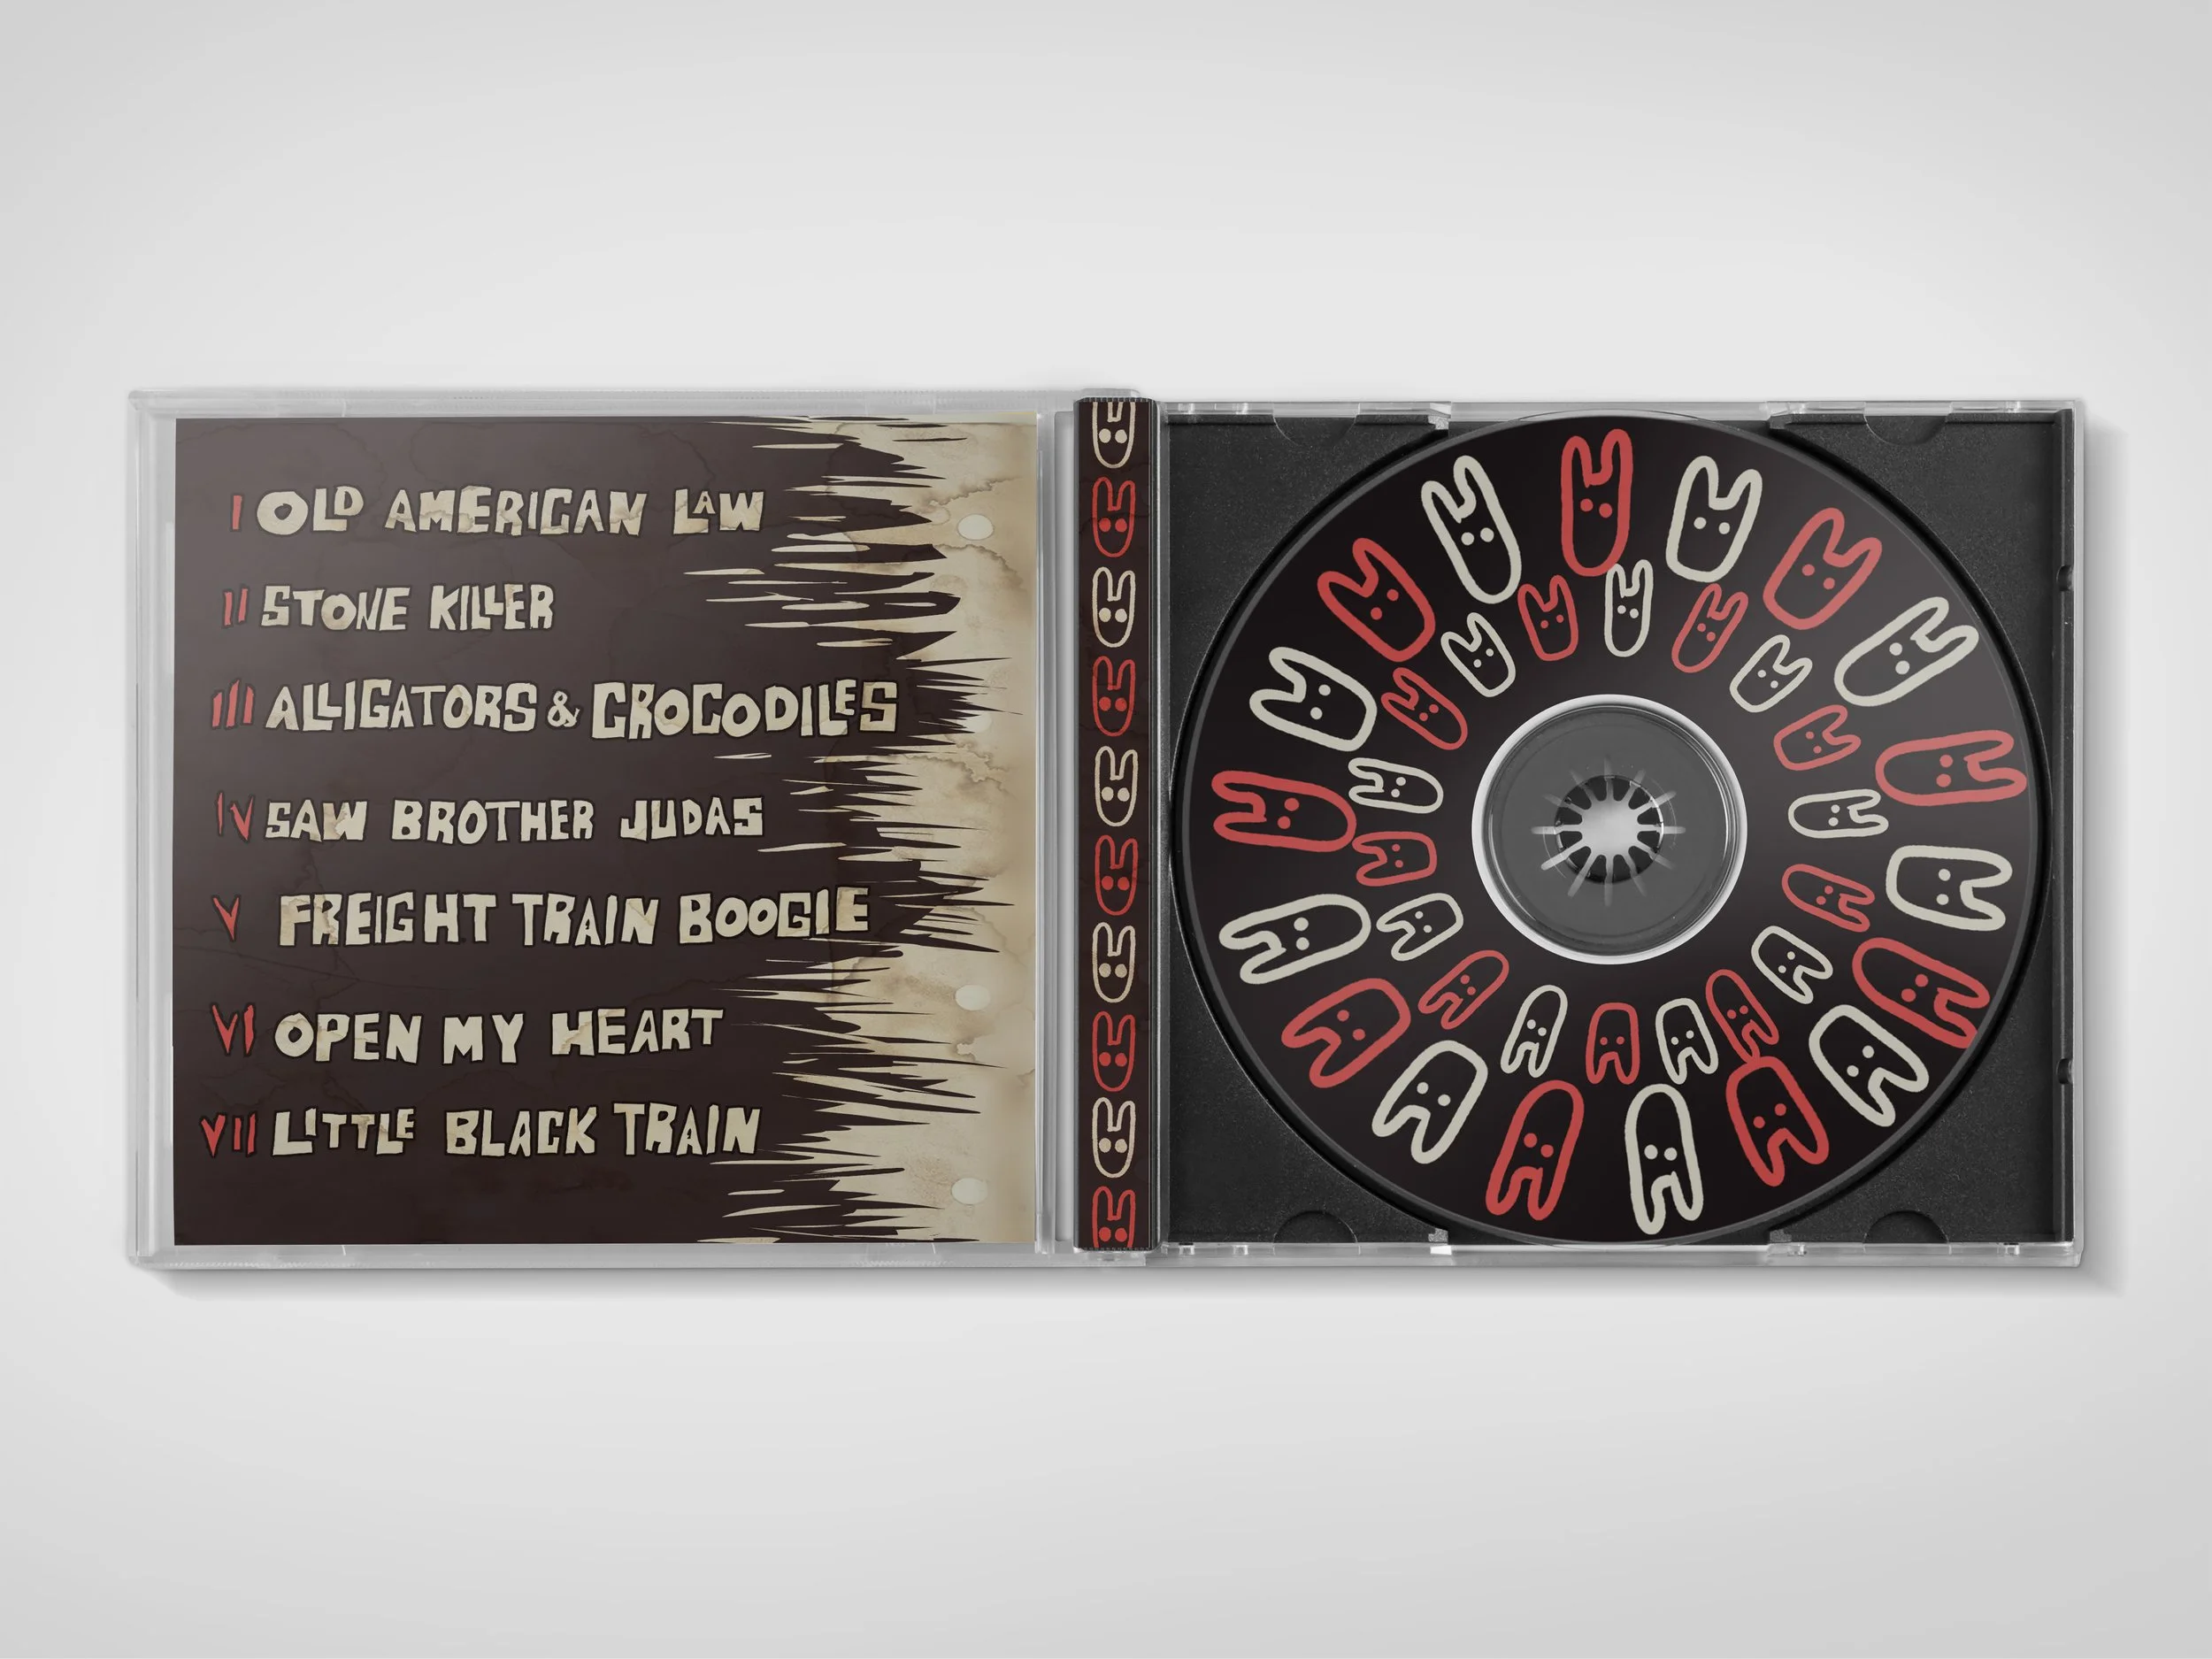 I OLD AMERICAN LAW
II STONE KILLER
III ALLIGATORS & CROCODILES
IV SAW BROTHER JUDAS
V FREIGHT TRAIN BOOGIE
VI OPEN MY HEART
VII LITTLE BLACK TRAIN